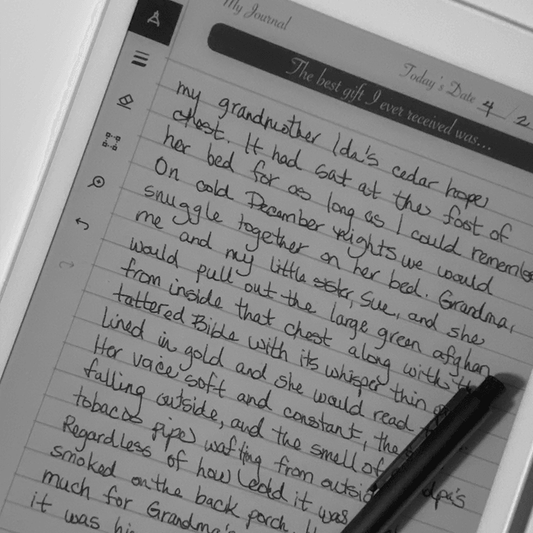 My Journal
Today's Date 4/2
The best gift I ever received was...
my grandmother Ida's cedar hope
chest. It had sat at the foot of
her bed for as long as I could remember
On cold December nights we would
snuggle together on her bed. Grandma,
me and my little sister, Sue, and she
would pull out the large green afghan
from inside that chest along with
tattered Bible with its whisper thin
lined in gold and she would read
Her voice, soft and constant, the
falling outside, and the smell of
tobacco pipe wafting from outside
Regardless of how cold it was
smoked on the back porch.
much for Grandma's
it was his